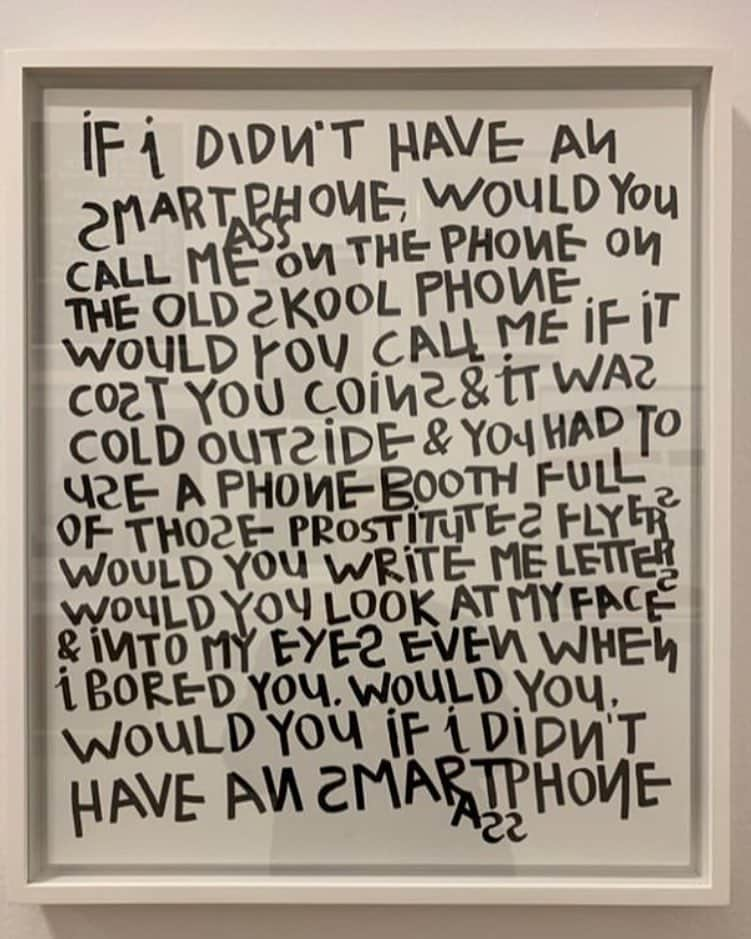 iF i DiDN'T HAVE AN
SMARTPHONE, WOULD YOU
ASS
CALL ME ON THE PHONE ON
THE OLD SKOOL PHONE
WOULD YOU CALL ME iF iT
COST YOU COiNS & iT WAS
COLD OUTSiDE & YOU HAD TO
USE A PHONE BOOTH FULL
OF THOSE PROSTiTUTES FLYERS
WOULD YOU WRiTE ME LETTERS
WOULD YOU LOOK AT MY FACE
& iNTO MY EYES EVEN WHEN
i BORED YOU. WOULD YOU.
WOULD YOU iF i DiDN'T
HAVE AN SMARTPHONE
ASS